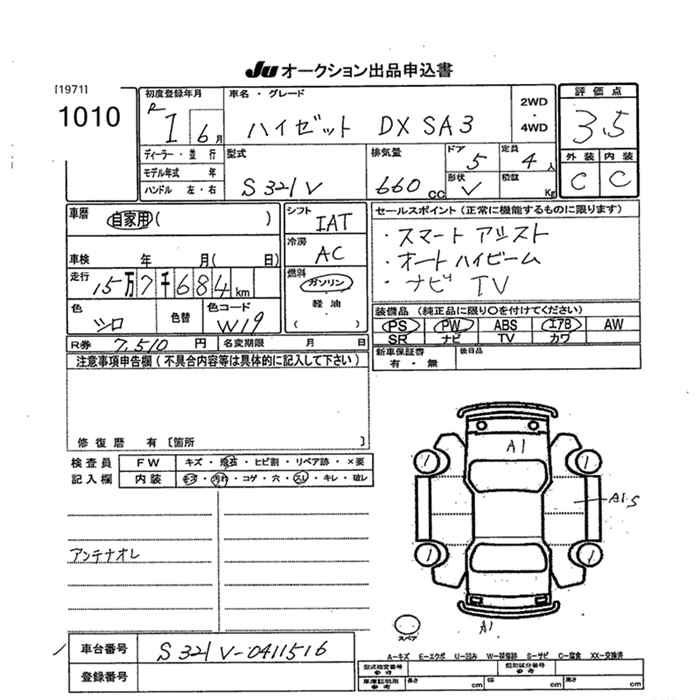 JU オークション出品申込書
[1971]
1010
初度登録年月
R 1 6月
車名・グレード
ハイゼット DX SA3
2WD
・
4WD
評価点
3.5
ディーラー・並行
モデル年式 年
ハンドル 左・右
型式
S321V
排気量
660 cc
ドア
5
形状
V
定員
4人
積証
Kg
外装
C
内装
C
車歴
自家用 ( )
車検 年 月( 日)
走行
15万7千684km
色
シロ
色替
色コード
W19
シフト
IAT
冷房
AC
燃料
ガソリン
軽油
( )
セールスポイント(正常に機能するものに限ります)
・スマートアシスト
・オートハイビーム
・ナビ TV
装備品(純正品に限り〇を付けてください)
PS PW ABS エアB AW
SR ナビ TV カワ
新車保証書
有・無
後日品
R券 7,510円
名変期限 月 日
注意事項申告欄(不具合内容等は具体的に記入して下さい)
修復歴 有〔箇所 〕
検査員
記入欄
FW キズ・飛石・ヒビ割・リペア跡・×要
内装 キズ・汚れ・コゲ・穴・スレ・キレ・破レ
アンテナオレ
A1
A1S
1
1
1
1
A1
スペア
車台番号
S321V-0411516
登録番号
A-キズ E-エクボ U-凹み W-補修跡 S-サビ C-腐食 XX-交換済
型式指定番号
参考
類別区分番号
参考
車庫証明用
参考
長さ cm
幅 cm
高さ cm